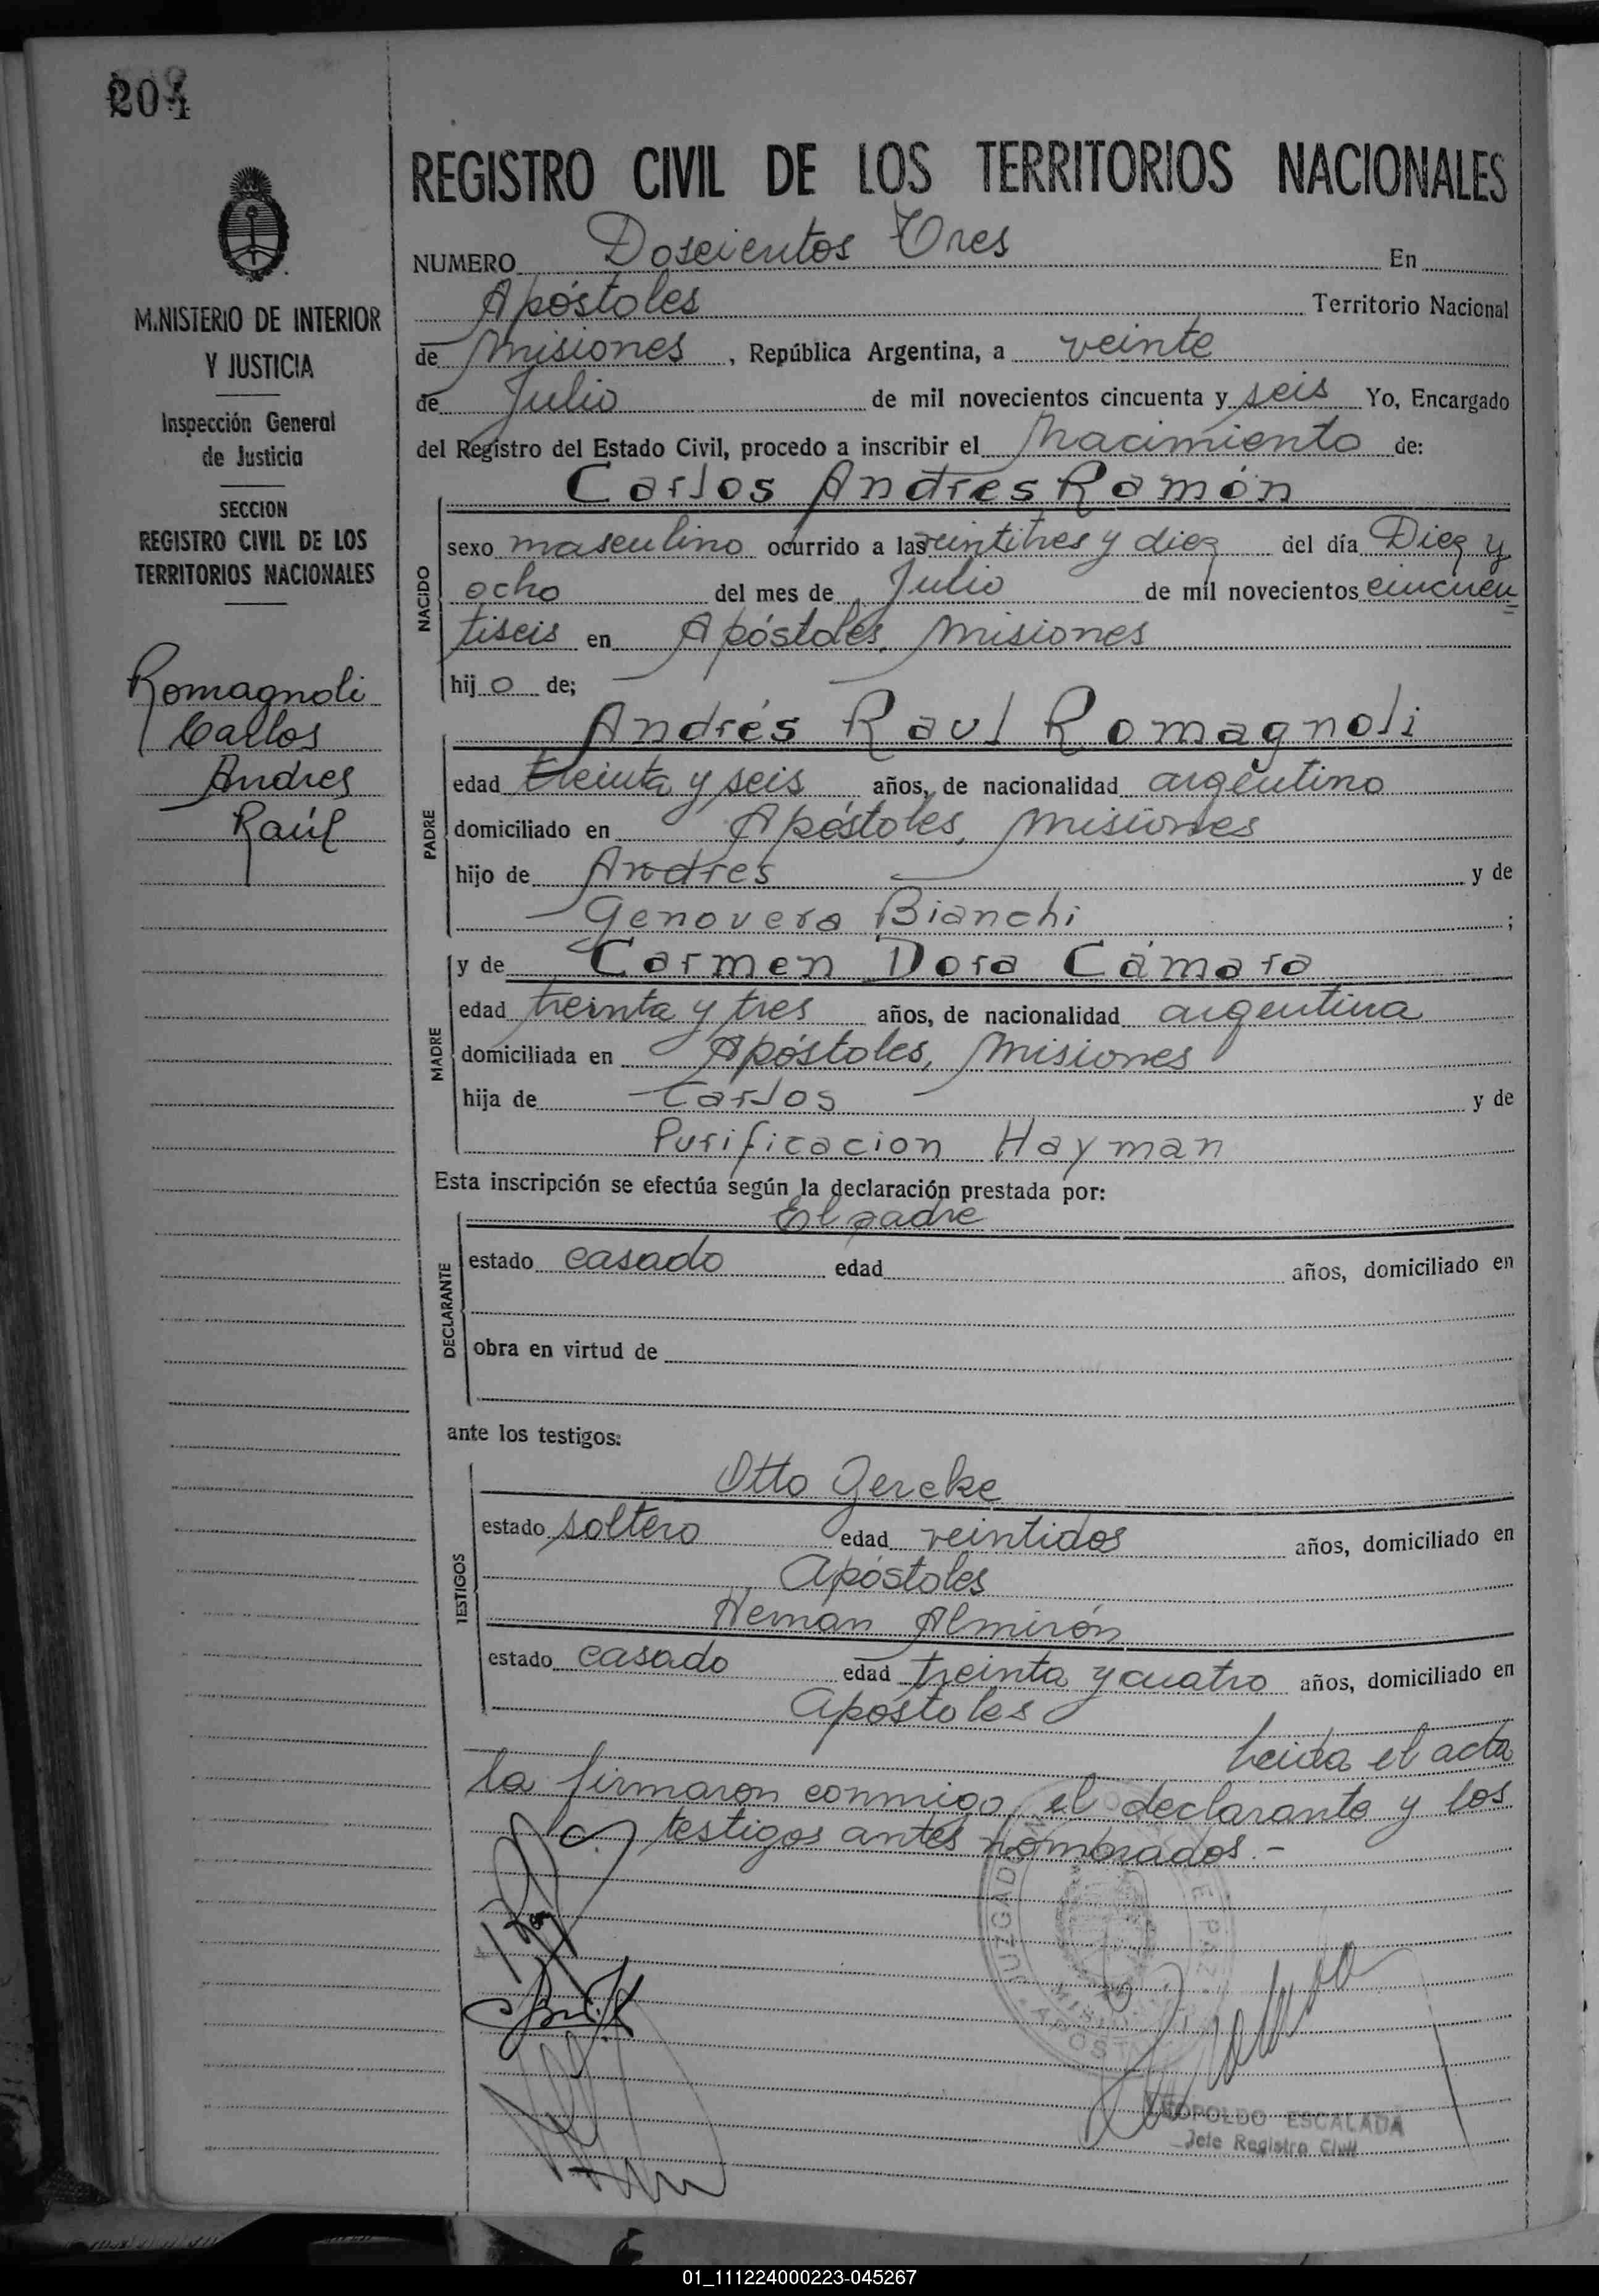 204
REGISTRO CIVIL DE LOS TERRITORIOS NACIONALES
NUMERO Doscientos Tres En
Apóstoles Territorio Nacional
de Misiones, República Argentina, a veinte
de Julio de mil novecientos cincuenta y seis Yo, Encargado
del Registro del Estado Civil, procedo a inscribir el Nacimiento de:
M.NISTERIO DE INTERIOR
Y JUSTICIA
Inspección General
de Justicia
SECCION
REGISTRO CIVIL DE LOS
TERRITORIOS NACIONALES
Romagnoli
Carlos
Andres
Raúl
NACIDO
Carlos Andres Ramón
sexo masculino ocurrido a las veintitres y diez del día Diez y
ocho del mes de Julio de mil novecientos cincuen
tiseis en Apóstoles, Misiones
hij o de;
PADRE
Andrés Raul Romagnoli
edad treinta y seis años, de nacionalidad argentino
domiciliado en Apóstoles, Misiones
hijo de Andres y de
Genoveva Bianchi ;
MADRE
y de Carmen Dora Cámara
edad treinta y tres años, de nacionalidad argentina
domiciliada en Apóstoles, Misiones
hija de Carlos y de
Purificacion Hayman
Esta inscripción se efectúa según la declaración prestada por:
DECLARANTE
El padre
estado casado edad años, domiciliado en
obra en virtud de
ante los testigos:
TESTIGOS
Otto Gercke
estado soltero edad veintidos años, domiciliado en
Apóstoles
Hernan Almirón
estado casado edad treinta y cuatro años, domiciliado en
Apóstoles
Leida el acta
la firmaron conmigo, el declarante y los
testigos antes nombrados.-
JUZGADO DE PAZ
LEOPOLDO ESCALADA
Jefe Registro Civil
01_111224000223-045267